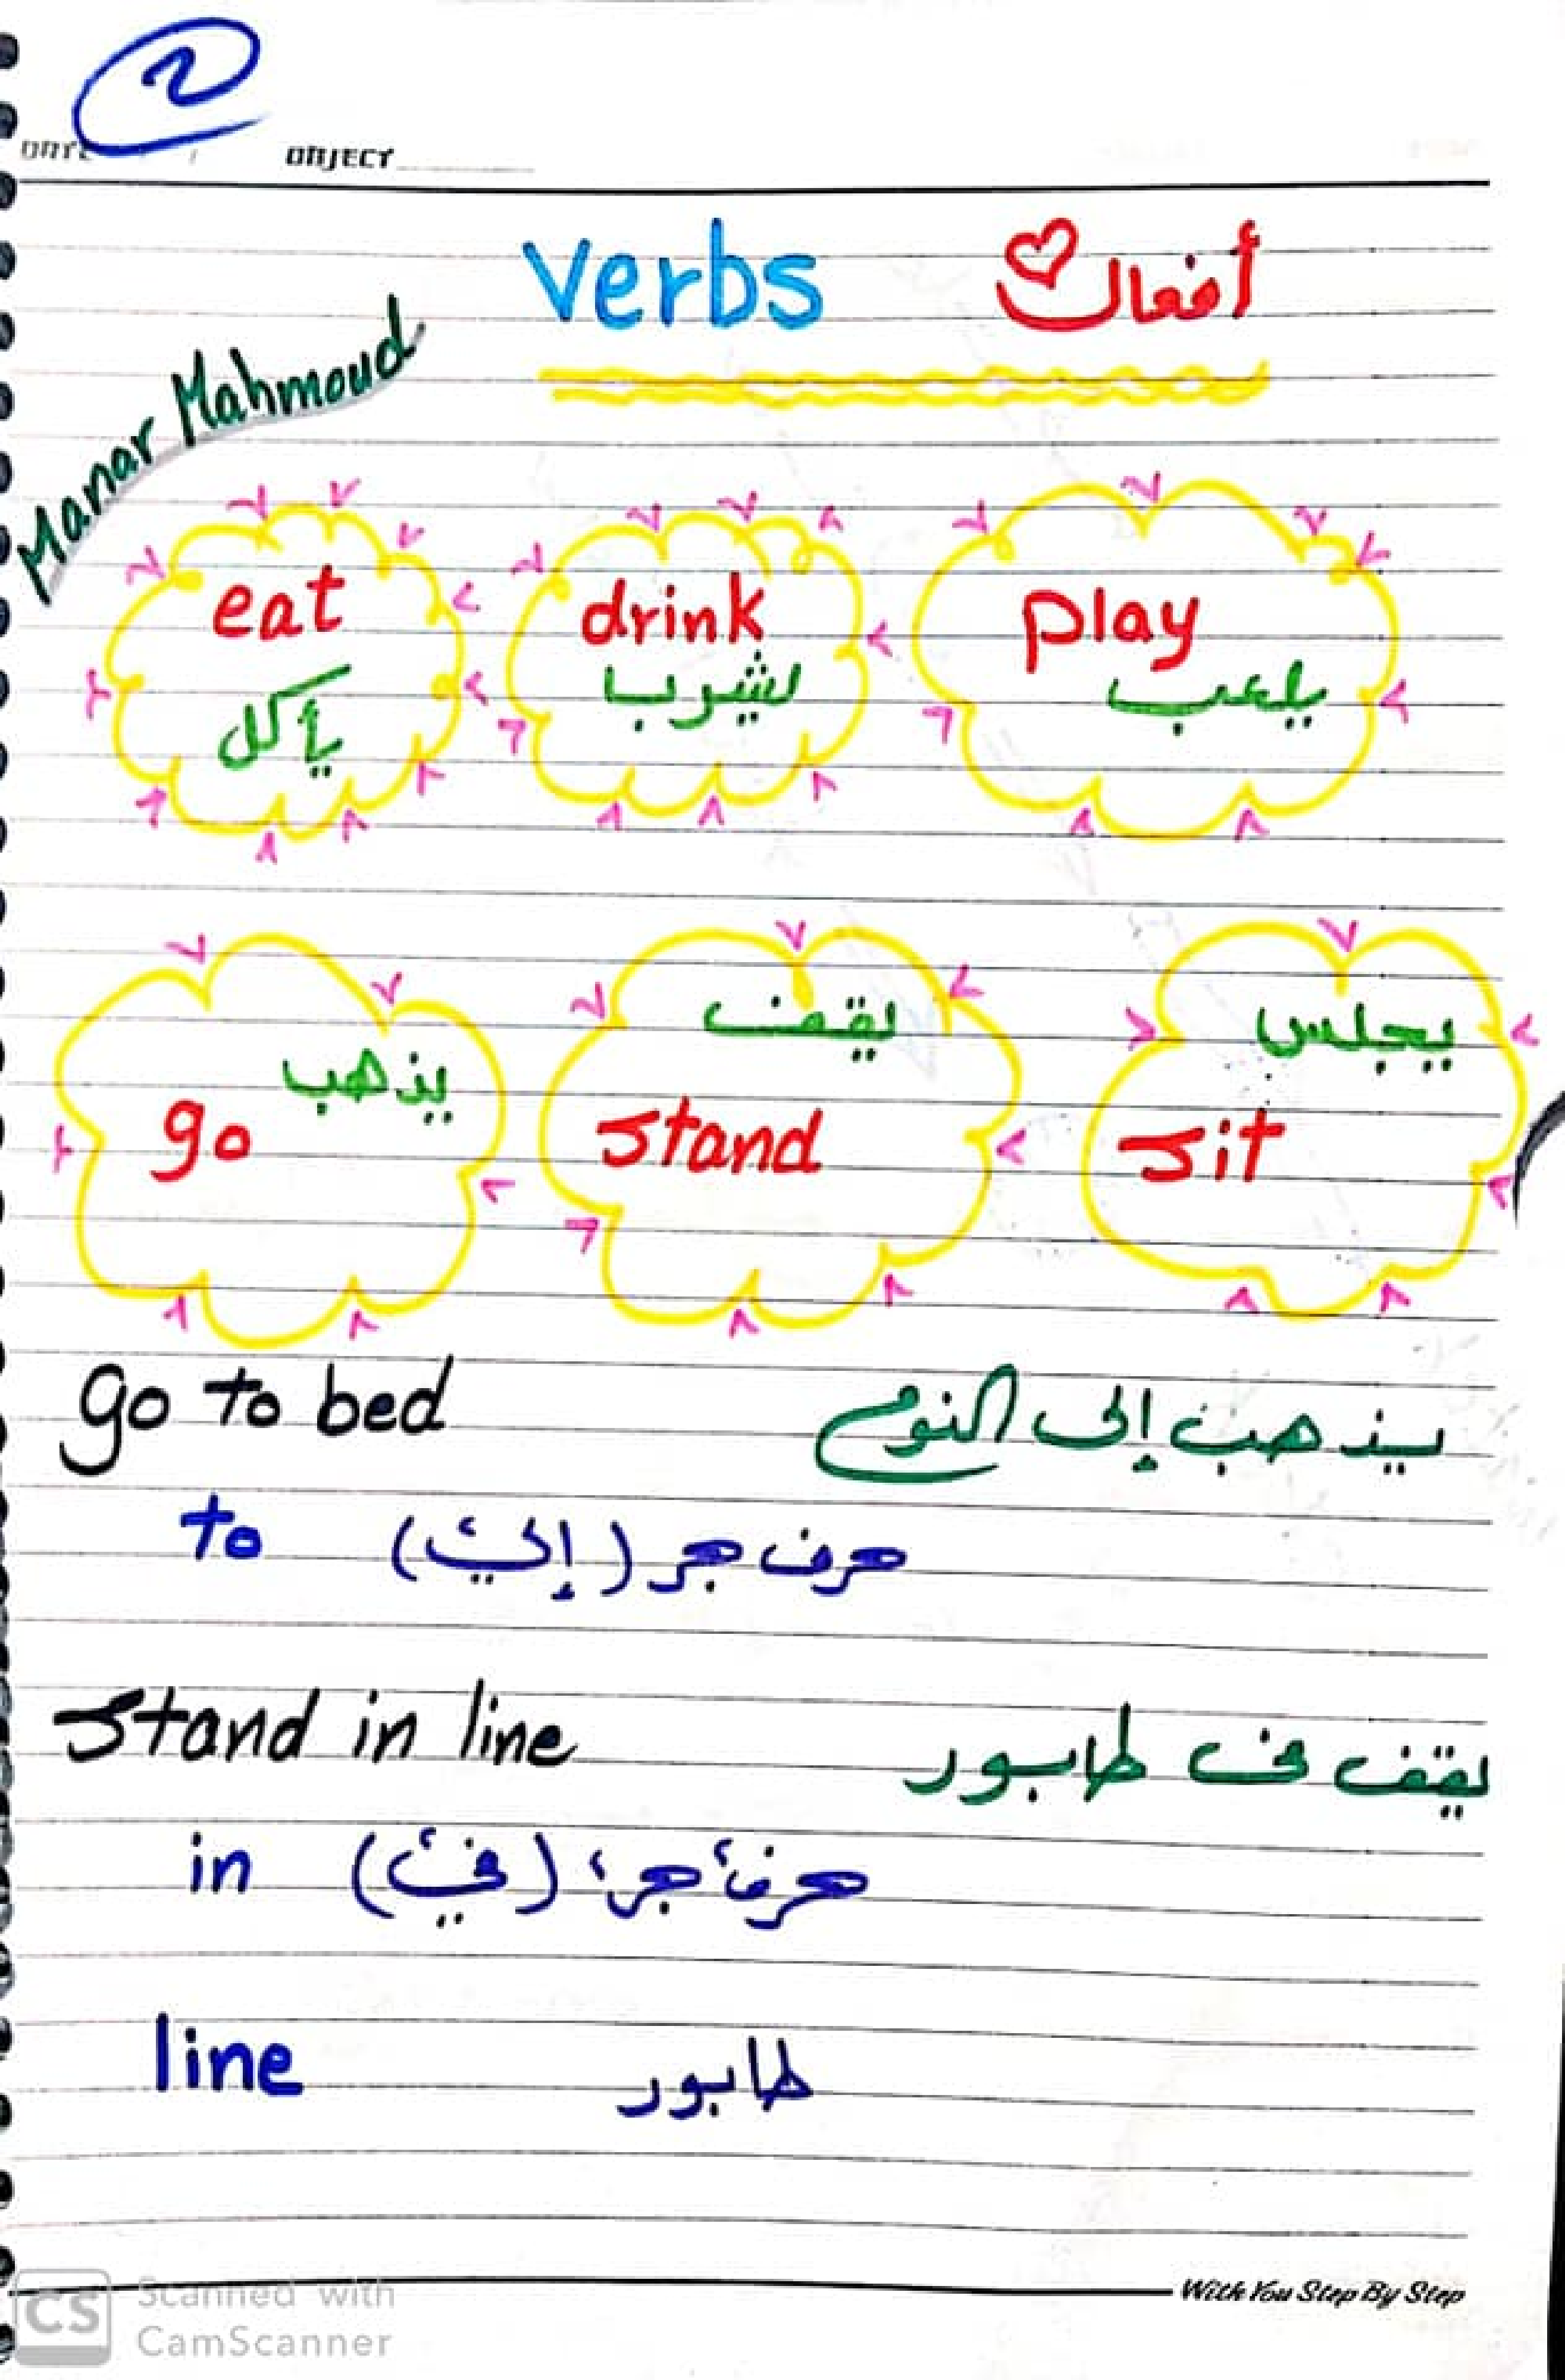 2
DATE / / OBJECT
Verbs أفعال
Manar Mahmoud
eat drink play
يأكل يشرب يلعب
يذهب يقف يجلس
go stand sit
go to bed يذهب إلى النوم
to حرف جر (إلي)
stand in line يقف في طابور
in حرف جر (في)
line طابور
With You Step By Step
CS Scanned with
CamScanner